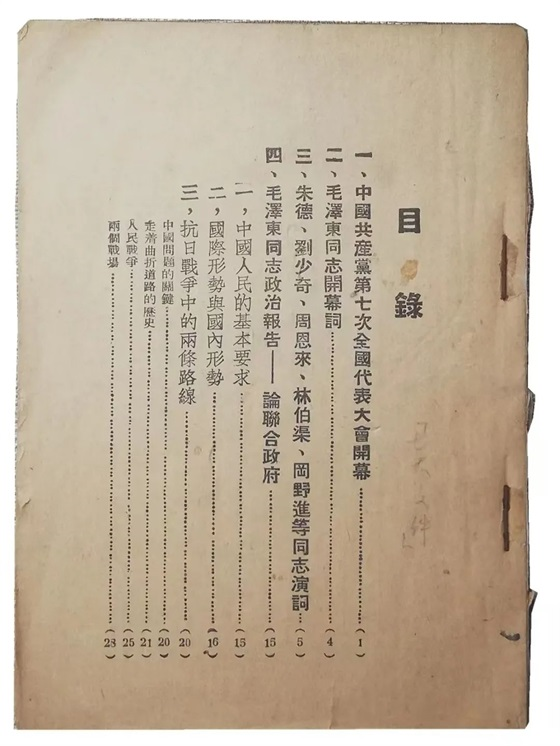 目錄
一、中國共產黨第七次全國代表大會開幕……(1)
二、毛澤東同志開幕詞……(4)
三、朱德、劉少奇、周恩來、林伯渠、岡野進等同志演詞…(5)
四、毛澤東同志政治報告——論聯合政府……(15)
一，中國人民的基本要求……(15)
二，國際形勢與國內形勢……(16)
三，抗日戰爭中的兩條路線……(20)
中國問題的關鍵……(20)
走着曲折道路的歷史……(21)
人民戰爭……(25)
兩個戰場……(28)